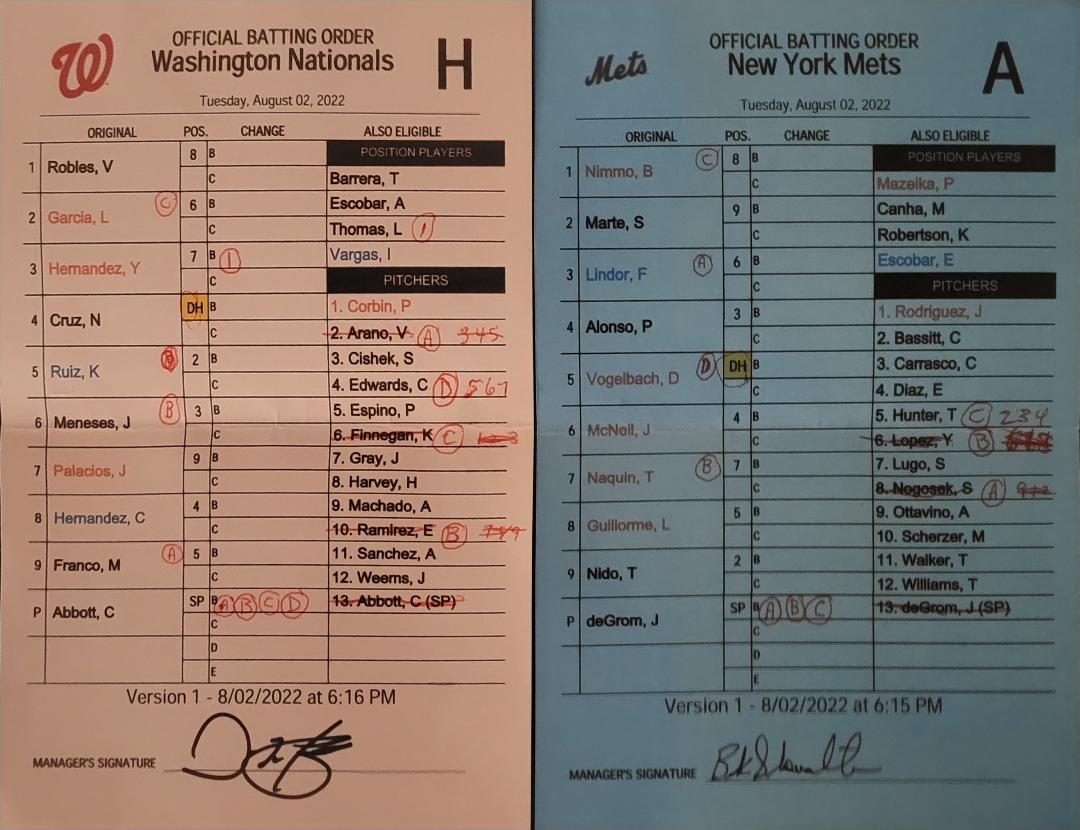 W
OFFICIAL BATTING ORDER
Washington Nationals
H
Tuesday, August 02, 2022
ORIGINAL POS. CHANGE ALSO ELIGIBLE
1 Robles, V 8 B POSITION PLAYERS
C Barrera, T
2 Garcia, L C 6 B Escobar, A
C Thomas, L 1
3 Hernandez, Y 7 B 1 Vargas, I
C PITCHERS
4 Cruz, N DH B 1. Corbin, P
C 2. Arano, V A 345
5 Ruiz, K 2 B 3. Cishek, S
C 4. Edwards, C D 567
6 Meneses, J B 3 B 5. Espino, P
C 6. Finnegan, K C
7 Palacios, J 9 B 7. Gray, J
C 8. Harvey, H
8 Hernandez, C 4 B 9. Machado, A
C 10. Ramirez, E B 789
9 Franco, M A 5 B 11. Sanchez, A
C 12. Weems, J
P Abbott, C SP B A B C D 13. Abbott, C (SP)
C
D
E
Version 1 - 8/02/2022 at 6:16 PM
MANAGER'S SIGNATURE
Mets
OFFICIAL BATTING ORDER
New York Mets
A
Tuesday, August 02, 2022
ORIGINAL POS. CHANGE ALSO ELIGIBLE
1 Nimmo, B C 8 B POSITION PLAYERS
C Mazeika, P
2 Marte, S 9 B Canha, M
C Robertson, K
3 Lindor, F A 6 B Escobar, E
C PITCHERS
4 Alonso, P 3 B 1. Rodriguez, J
C 2. Bassitt, C
5 Vogelbach, D D DH B 3. Carrasco, C
C 4. Diaz, E
6 McNeil, J 4 B 5. Hunter, T C 234
C 6. Lopez, Y B
7 Naquin, T B 7 B 7. Lugo, S
C 8. Nogosek, S A
8 Guillorme, L 5 B 9. Ottavino, A
C 10. Scherzer, M
9 Nido, T 2 B 11. Walker, T
C 12. Williams, T
P deGrom, J SP B A B C 13. deGrom, J (SP)
C
D
E
Version 1 - 8/02/2022 at 6:15 PM
MANAGER'S SIGNATURE